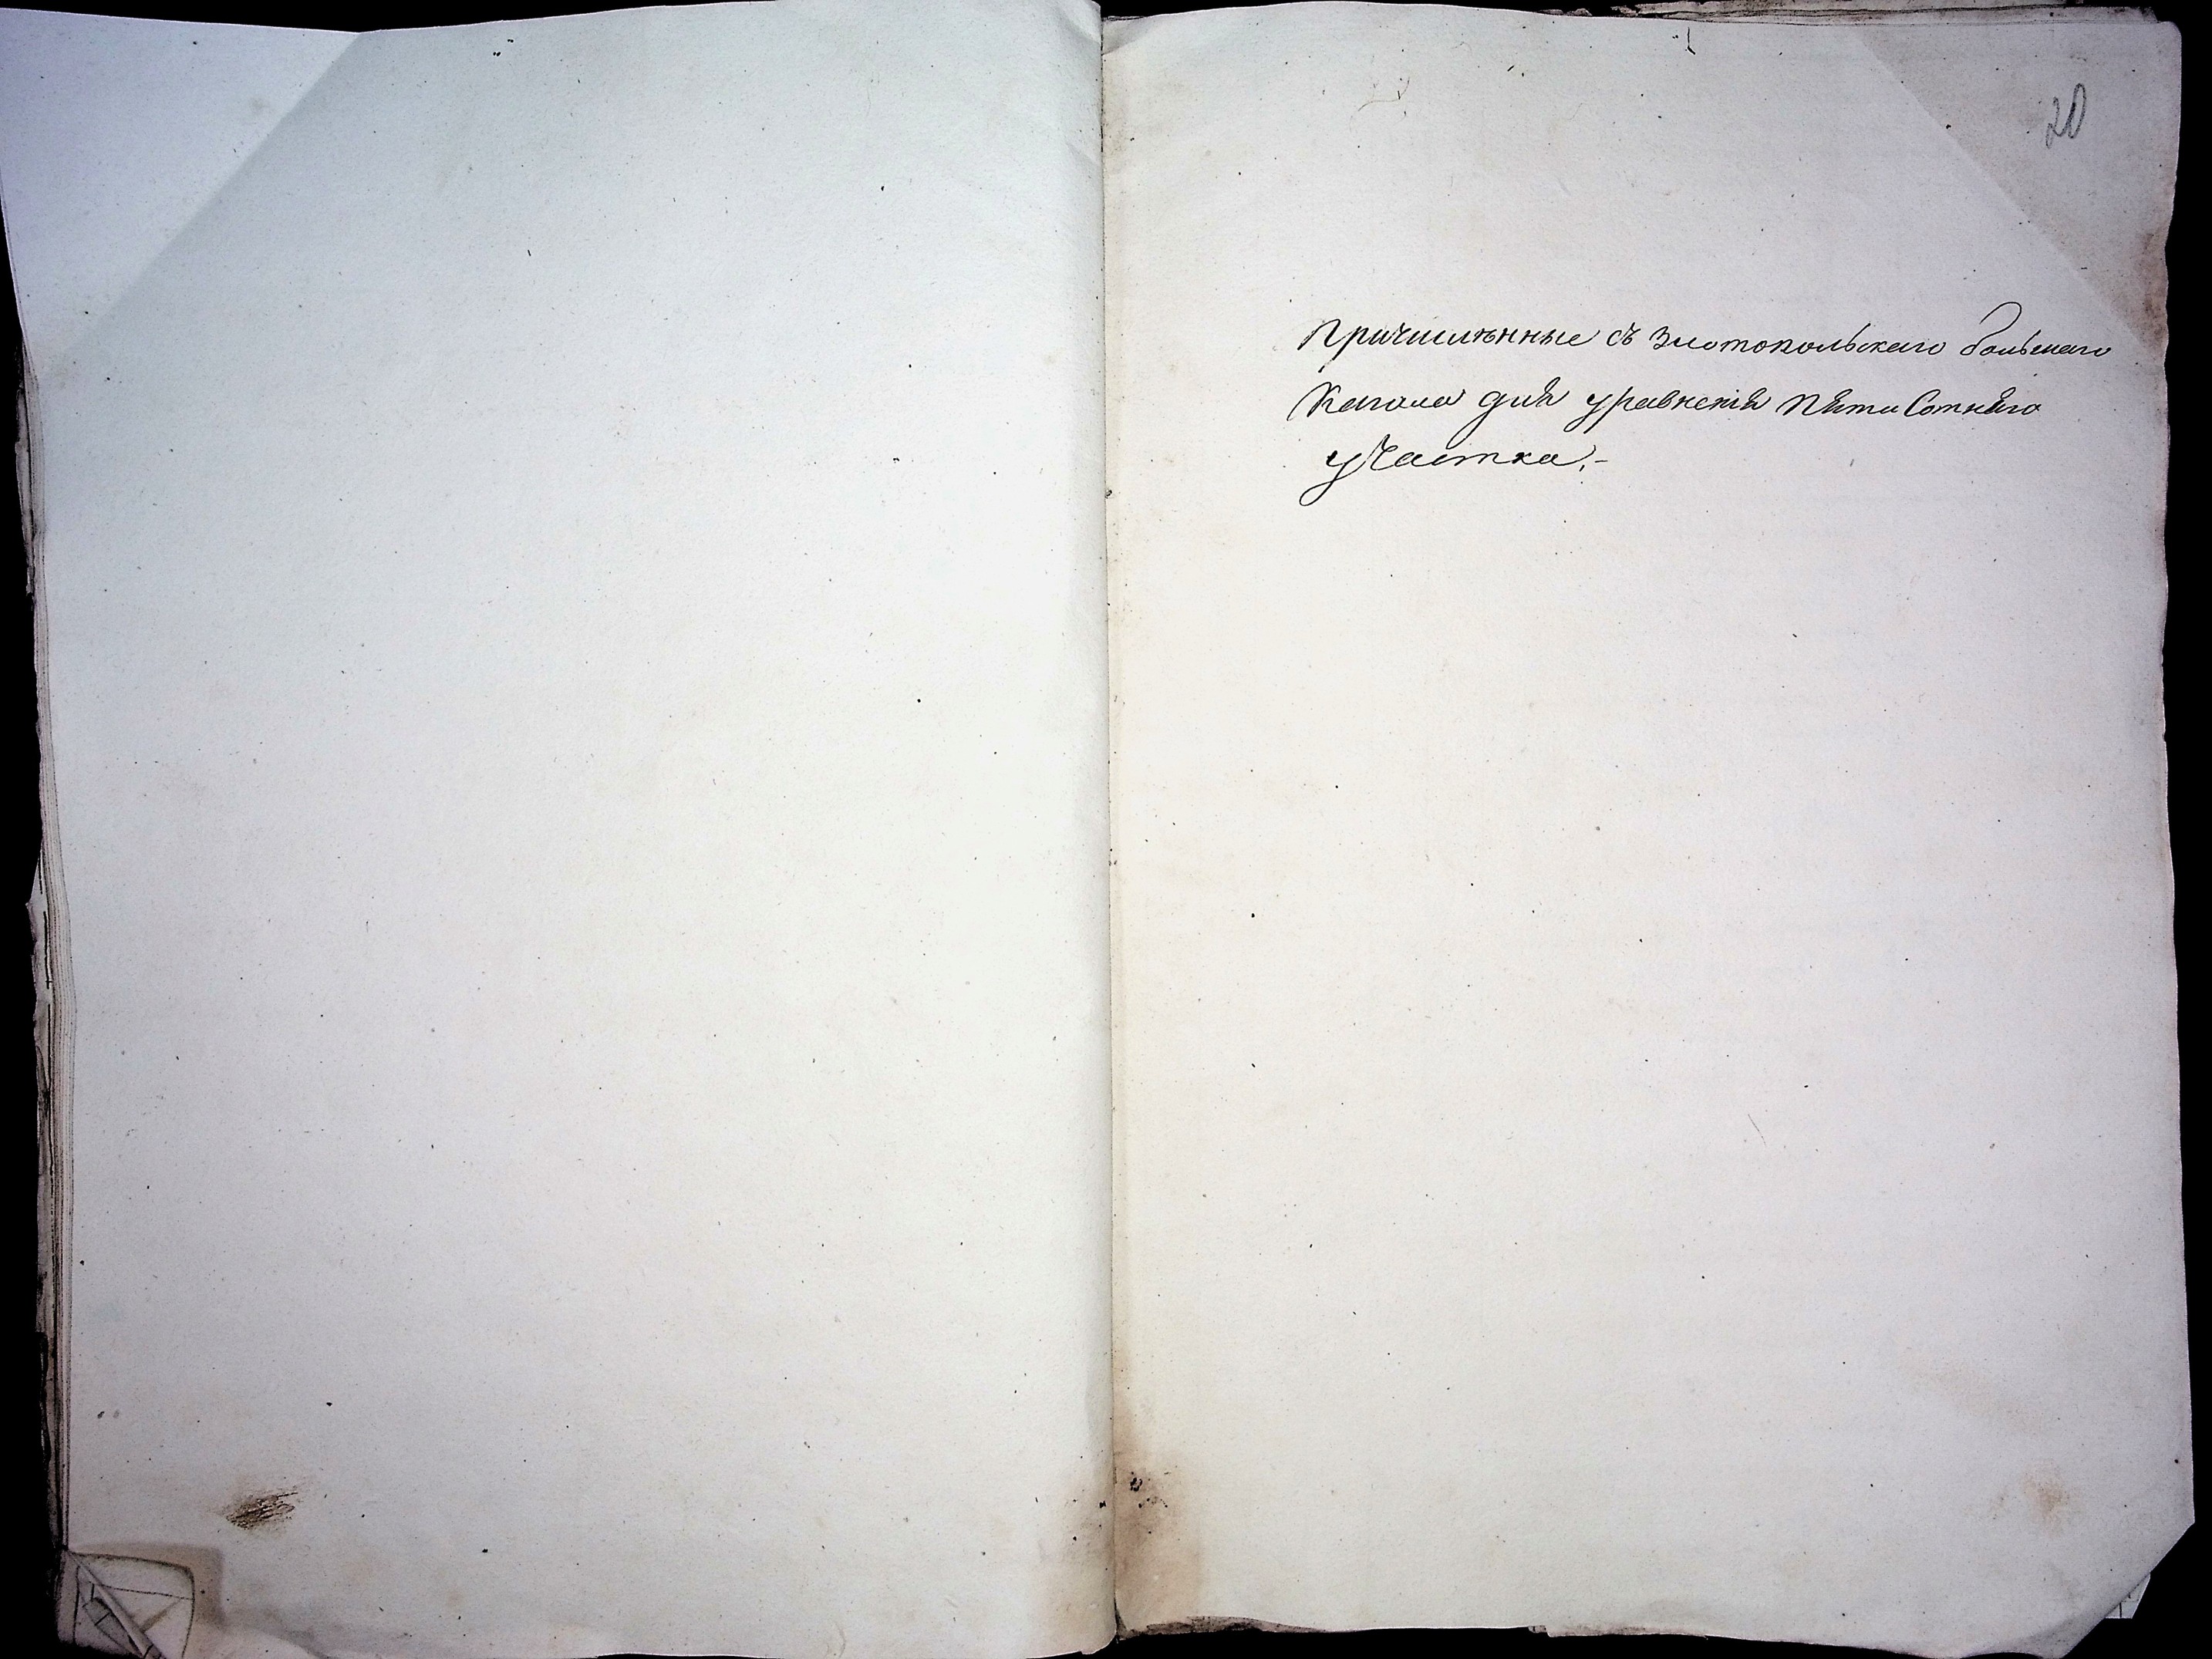 20
Причислѣнные съ Златопольскаго большаго
Кагала для уравненія Пяти Сотняго
участка.-